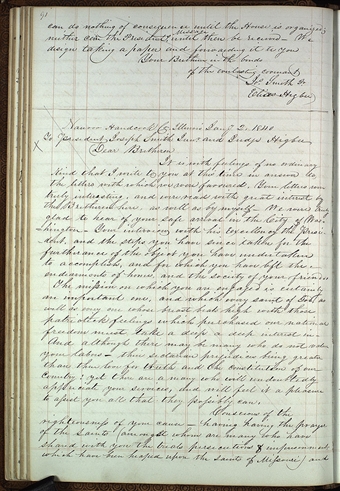 can do nothing of consequence until the House is organized
neither can the President's message until then be received — We
design taking a paper and forwarding it to you
Your Brethren in the bonds
of the everlasting covenant,
Js. Smith Jr
Elias Higbee
Nauvoo Hancock Co Illinois Jany 2. 1840
To President Joseph Smith Junr and Judge Higbee
Dear Brethren
It is with feelings of no ordinary
kind that I write to you at this time in answer to
the letters with which we were favoured. Your letters were
truly interesting, and were read with great interest by
the Brethren here, as well as by myself. We were
glad to hear of your safe arrival in the City of Wash
ington — Your interview with his excellency the Presi
dent, and the steps you have since taken for the
furtherance of the object you have undertaken
to accomplish, and for which you have left the
endearments of home, and the society of your friends
The mission on which you are engaged is certainly
an important one, and which every saint of God, as
well as every one whose breast beats high with those
patriotic feelings which purchased our national
freedom must take a deep a deep interest in.
And although there may be many who do not value
your labors — their sectarian prejudices being greater
than their love for truth and the constitution of our
country: yet there are many who will undoubtedly
appreciate your services, and will feel it a pleasure
to assist you all that they possibly can.
Conscious of the
righteousness of your cause — having having the prayers
of the saints (amongst whom are many who have
shared with you the trials persecutions & imprisonment
which have been heaped upon the saints of Missouri) and